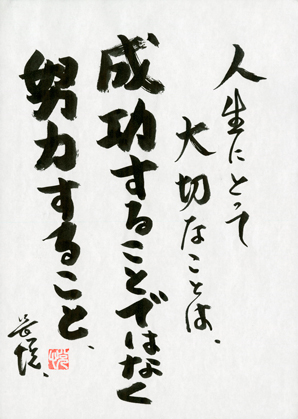 人生にとって
大切なことは、
成功することではなく
努力すること、